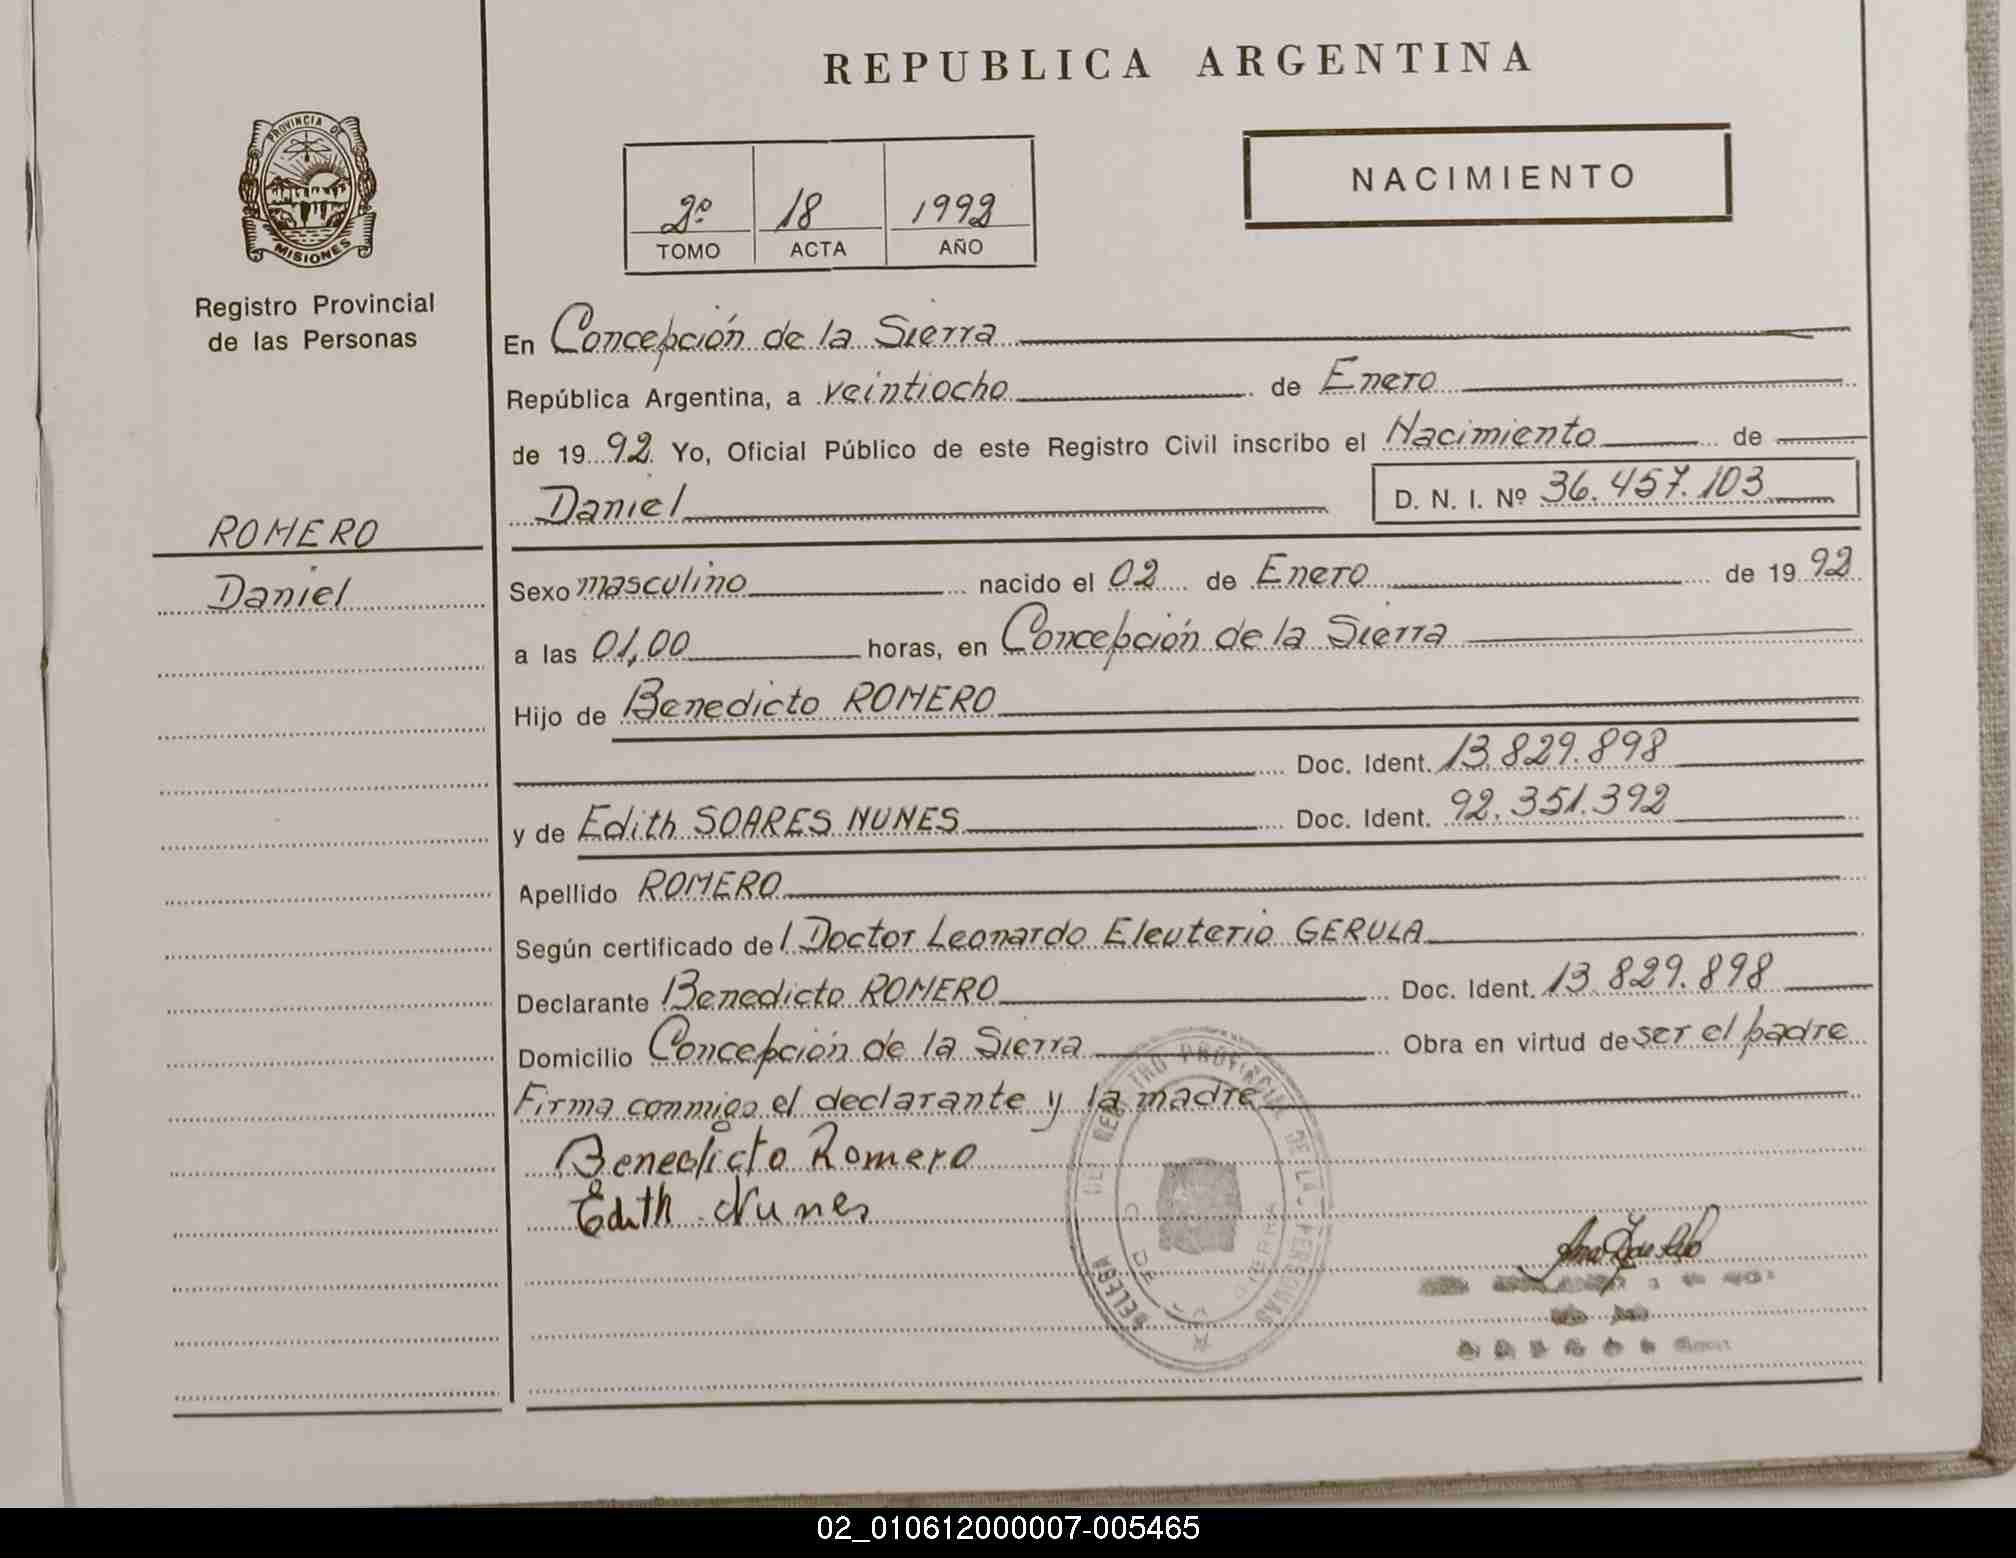 REPUBLICA ARGENTINA
PROVINCIA DE
MISIONES
Registro Provincial
de las Personas
2º 18 1992
TOMO ACTA AÑO
NACIMIENTO
En Concepción de la Sierra
República Argentina, a veintiocho de Enero
de 1992 Yo, Oficial Público de este Registro Civil inscribo el Nacimiento de
Daniel D. N. I. Nº 36.457.103
ROMERO
Daniel
Sexo masculino nacido el 02 de Enero de 1992
a las 01,00 horas, en Concepción de la Sierra
Hijo de Benedicto ROMERO
Doc. Ident. 13.829.898
y de Edith SOARES NUNES Doc. Ident. 92.351.392
Apellido ROMERO
Según certificado del Doctor Leonardo Eleuterio GERULA
Declarante Benedicto ROMERO Doc. Ident. 13.829.898
Domicilio Concepción de la Sierra Obra en virtud de ser el padre
Firma conmigo el declarante y la madre
Benedicto Romero
Edith Nunes
REGISTRO PROVINCIAL DE LAS PERSONAS
02_010612000007-005465